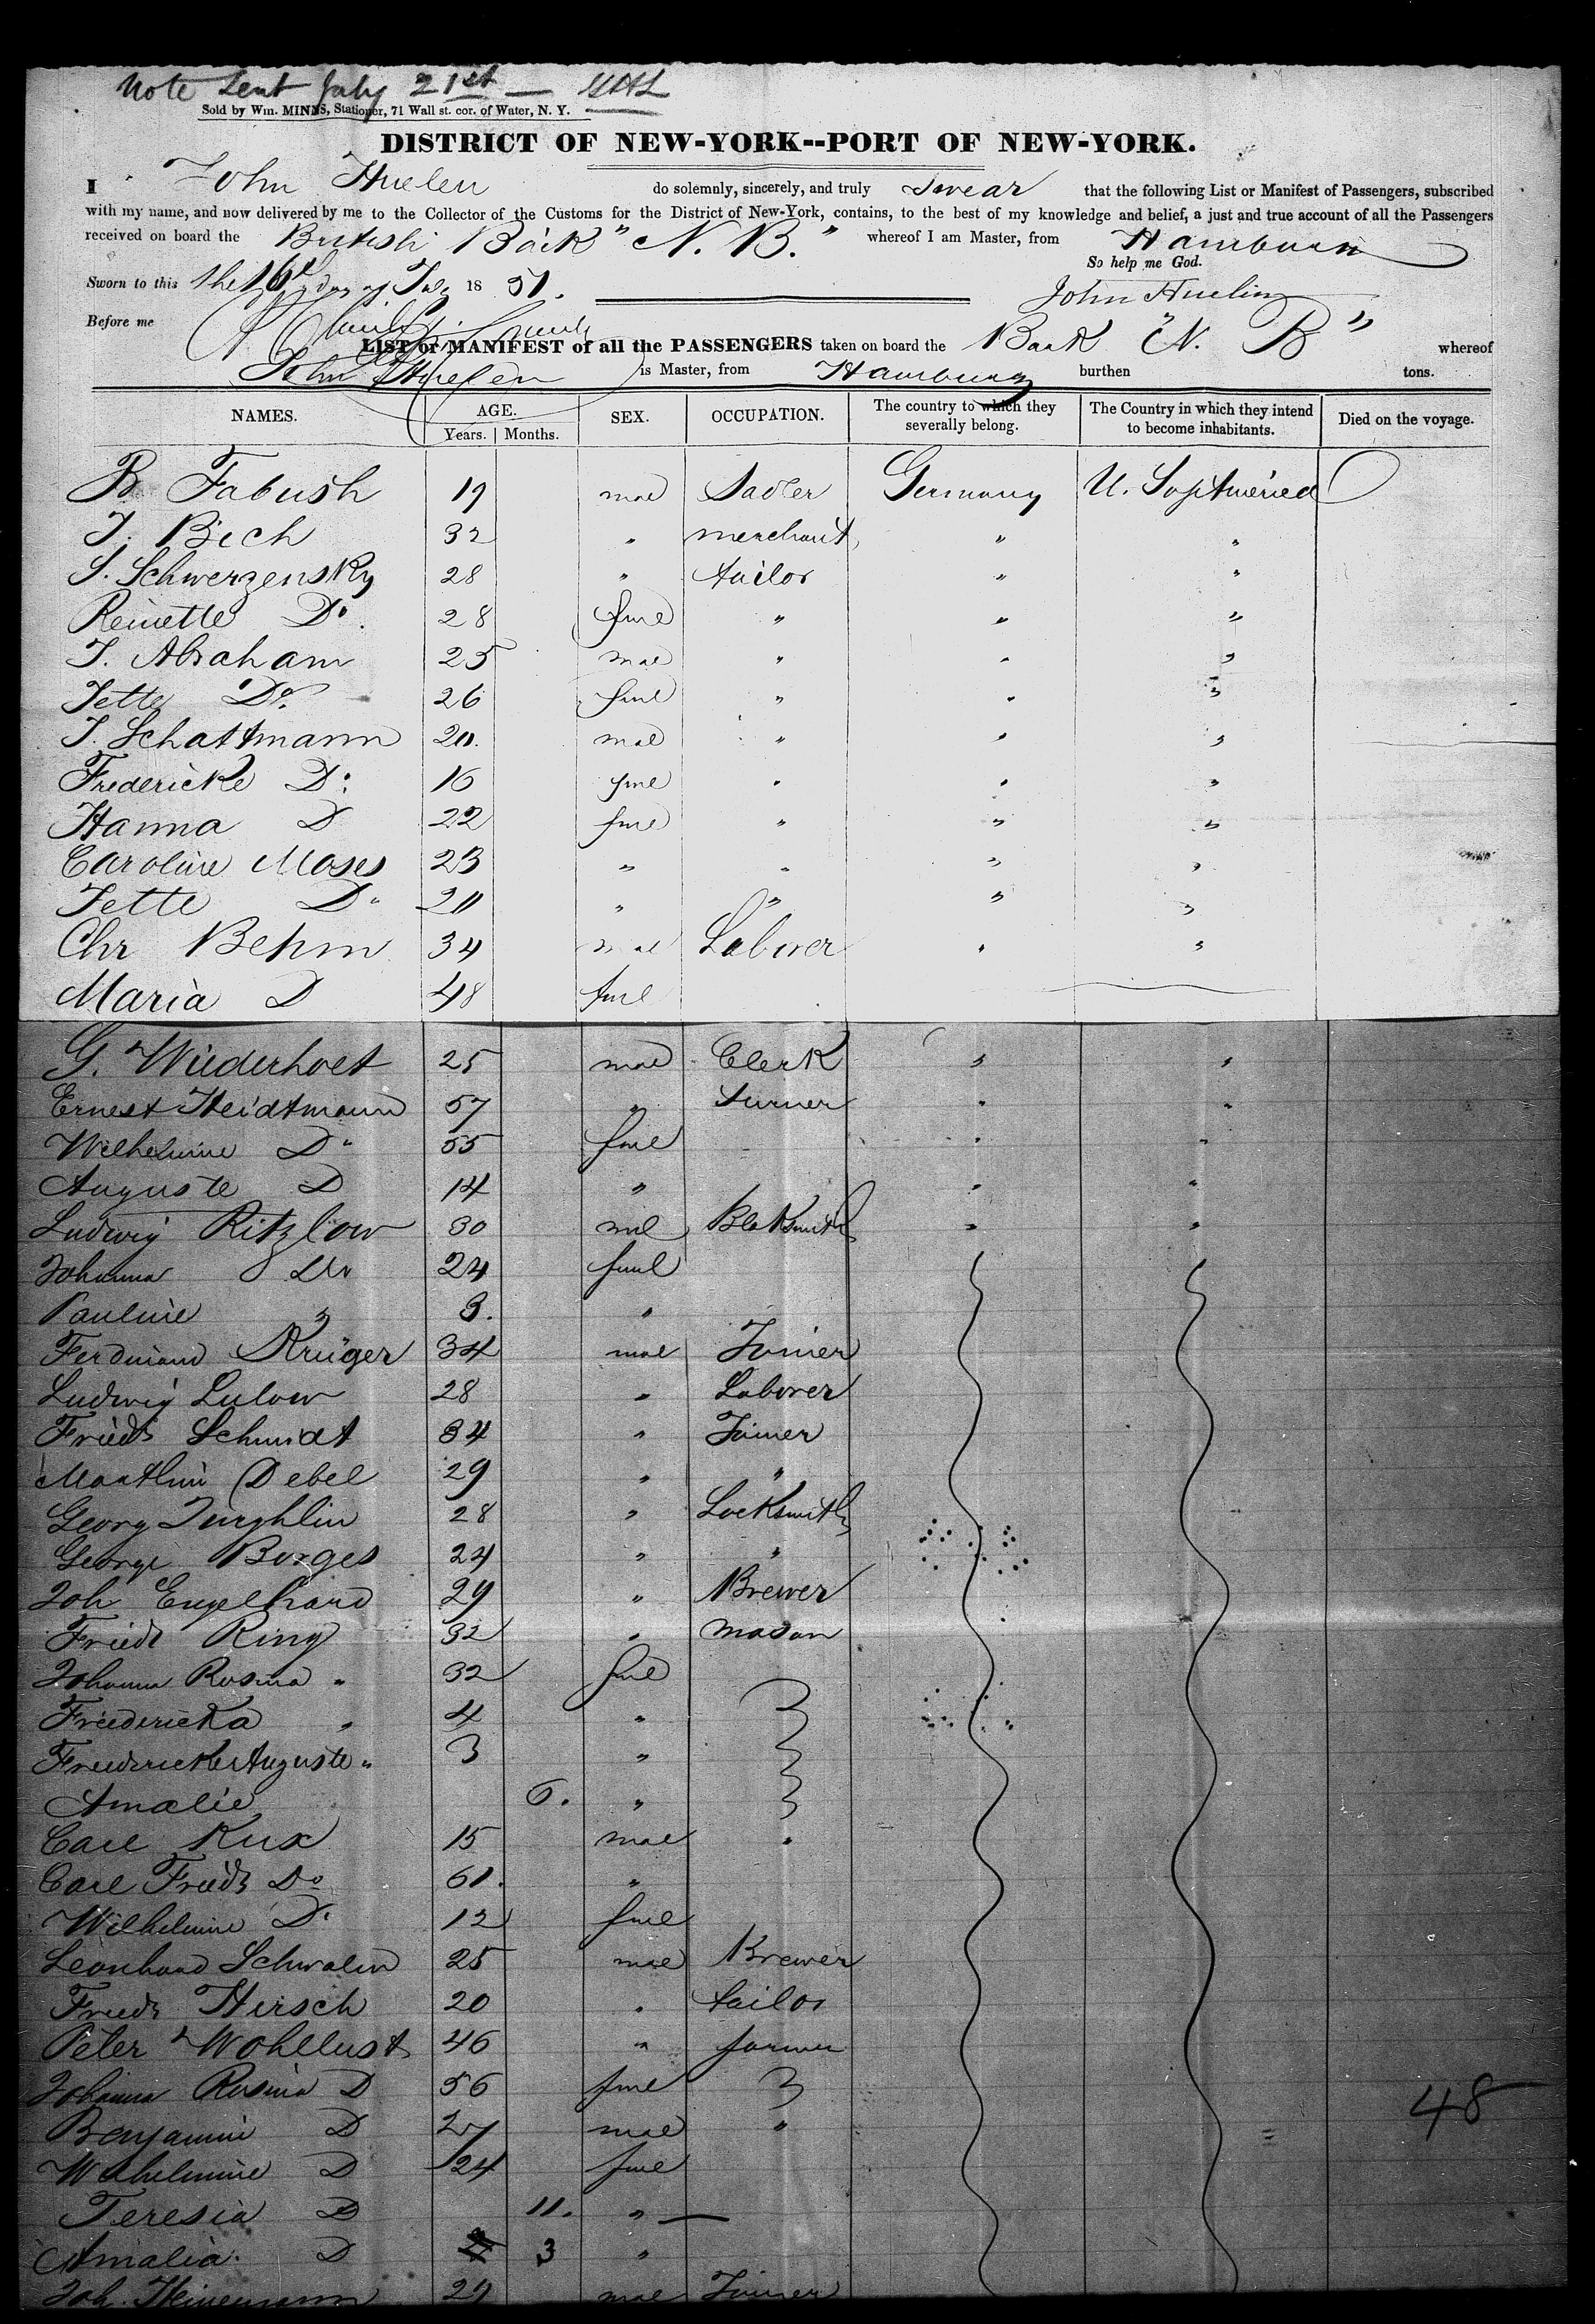 Note Sent July 21st —
Sold by Wm. MINNS, Stationer, 71 Wall st. cor. of Water, N. Y.
DISTRICT OF NEW-YORK--PORT OF NEW-YORK.
I John Huelen do solemnly, sincerely, and truly Swear that the following List or Manifest of Passengers, subscribed
with my name, and now delivered by me to the Collector of the Customs for the District of New-York, contains, to the best of my knowledge and belief, a just and true account of all the Passengers
received on board the British Bark "N. B." whereof I am Master, from Hamburg
So help me God.
Sworn to this the 16 day of 18 51.
John Huelin
Before me
LIST or MANIFEST of all the PASSENGERS taken on board the Bark "N. B" whereof
John Huelen is Master, from Hamburg burthen tons.
NAMES. AGE. SEX. OCCUPATION. The country to which they severally belong. The Country in which they intend to become inhabitants. Died on the voyage.
Years. Months.
B Fabush 19 mal Sadler Germany
J. Bich 32 " merchant " "
S. Schwerzensky 28 " tailor " "
Reinette Do. 28 fml " " "
J. Abraham 25 mal " " "
Jette Do. 26 fml " " "
J. Schattmann 20. mal " " "
Fredericke Do 16 fml " " "
Hanna D 22 fml " " "
Caroline Moses 23 " " " "
Jette Do 20 " " " "
Chr Behm 34 mal Laborer " "
Maria D 48 fml
G. Wiederhoet 25 mal Clerk " "
Ernest Heidtmann 57 " turner " "
Wilhelmine Do 55 fml " "
Auguste D 14 " " "
Ludwig Ritzlow 30 ml Blaksmith " "
Johanna Do 24 fml
Pauline " 3. "
Ferdinand Krüger 34 mal Joiner
Ludwig Lulow 28 " Laborer
Friedr Schmidt 34 " Joiner
Debel 29 " "
Georg 28 " Locksmith
George Borges 24 " "
Joh Engelhard 29 " Brewer
Friedr Ring 32 " mason
Johanna Rosina " 32 fml
Friedericka " 4 "
Friedericke Auguste " 3 "
Amalie 6. "
Carl Kux 15 mal "
Carl Friedr Do 61. "
Wilhelmine Do 12 fml
Leonhard Schwalin 25 mal Brewer
Friedr Hirsch 20 " tailor
Peter Wohllust 46 " farmer
Johanna Rosina D 56 fml
Benjamin D 27 mal "
Wilhelmine D 24 fml
48
Teresia D 11. " —
Amalia. D 3 "
Joh. Heinemann 29 mal Joiner